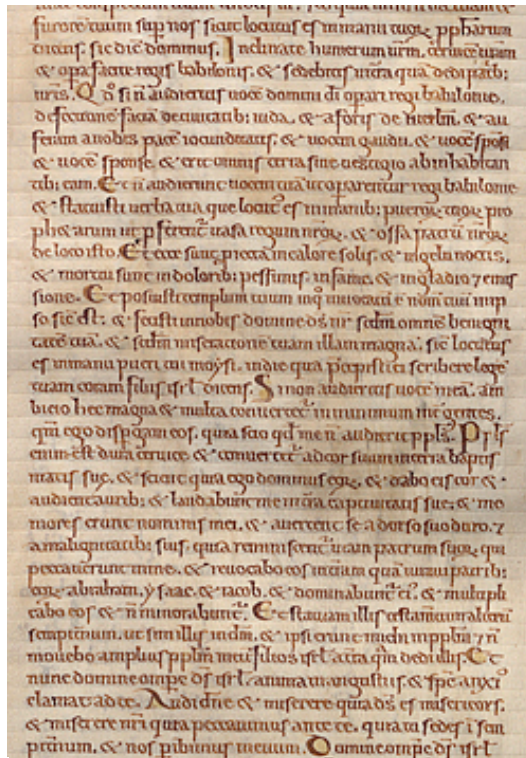 furorē tuum sup nos sicut locutus es in manu tuoꝝ pphetarum
dicens. sic dic̄ dominus. Inclinate humerum urm̄. & ceruicē uram
& opa facite regis babilonis. & sedebitis in tr̄a quā dedi patrib;
uris. Qd̄ si n̄ audieritis uocē domini di opari regi babilonie.
defectionē faciā de ciuitatib; iuda. & a foris de hierlm̄. & au
feram a nobis pacē iocunditatis. & uocem gaudii. & uocē sponsi
& uocē sponse. & erit omnis terra sine uestigio ab inhabitan
tib; eam. Et n̄ audierunt uocem tuā ut oparentur regi babilonie
& statuisti uerba tua que locut̄ es in manib; pueroꝝ tuoꝝ pro
phetarum ut p̄ferent̄ ossa regum nr̄oꝝ. & ossa patrū nr̄oꝝ
de loco isto. Et ecce sunt piecta in calore solis. & in gelu noctis.
& mortui sunt in dolorib; pessimis. in fame. & in gladio ⁊ emis
sione. Et posuisti templum tuum in q̊ inuocatū ē nom̄ tuū in ip
so sic̄ est. & fecisti in nobis domine ds̄ nr̄ scdm̄ omnē benigni
tatē tuā. & scdm̄ miseratione tuam illam magnā. sic̄ locutus
es in manu pueri tui moysi. in die qua p̄cepisti ei scribere legē
tuam coram filiis isrl̄ dicens. Si non audieritis uocē meā. am
bitio hec magna & multa conuertet̄ in minimum int̄ gentes.
qm̄ ego dispgam eos. quia scio qd̄ me n̄ audiet ppl̄s. Ppl̄s
enim est dura ceruice & conuertet̄ ad cor suum in terra captiui
tatis sue. & sciet quia ego dominus eoꝝ. & dabo eis cor &
audient aurib; & laudabunt me in tr̄a captiuitatis sue. & me
mores erunt nominis mei. & auertent se a dorso suo duro. ⁊
a malignitatib; suis. quia reminiscent̄ uiam patrum suoꝝ. qui
peccauerunt in me. & reuocabo eos in terrā quā iuraui patrib;
eoꝝ abraham. ysaac. & iacob. & dominabunt̄ ei. & multipli
cabo eos & n̄ minorabunt̄. Et statuam illis testam̄tū alterū
sempitnum. ut sim illis in dm̄. & ipsi erunt michi in pplm̄ ⁊ n̄
mouebo amplius pplm̄ meū filios isrl̄ a tr̄a qm̄ dedi illis. Et
nunc domine omp̄s ds̄ isrl̄. anima in angustiis. & sp̄s anxi
clamat ad te. Audi dn̄e & miserere quia ds̄ es misericors.
& miserere nr̄i quia peccauimus ante te. quia tu sedes i sem
pitnum. & nos pibimus in euum. Domine omp̄s ds̄ isrl̄